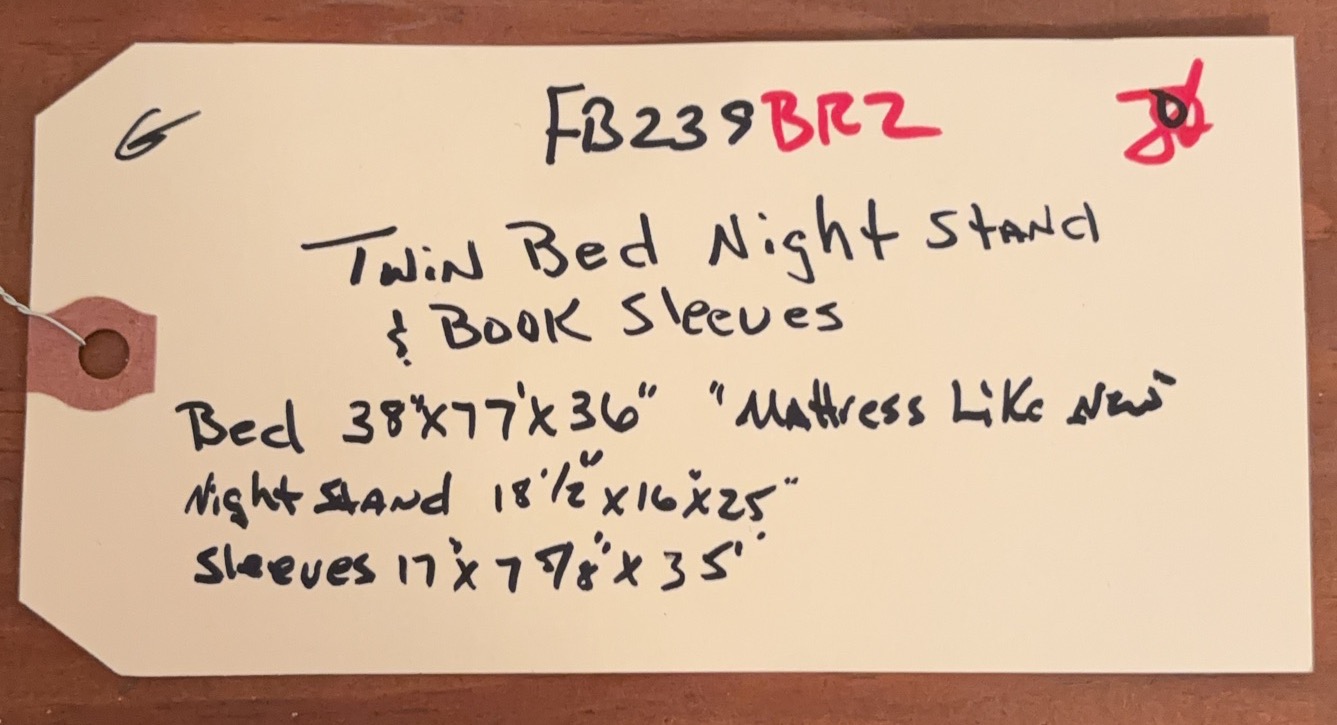 G FB239 BR2
Twin Bed Night Stand
& Book Sleeves
Bed 38"x77"x36" "Mattress Like New"
Night Stand 18 1/2"x16"x25"
Sleeves 17"x7 7/8"x35"